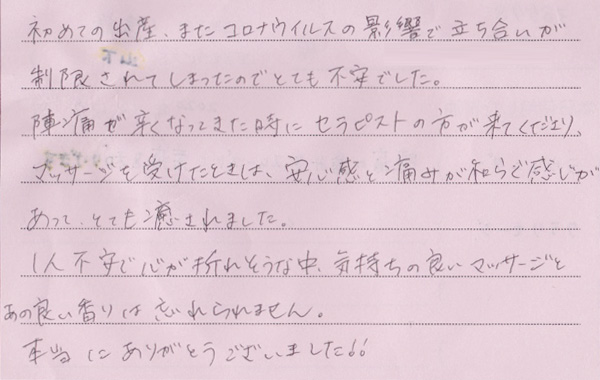 初めての出産、またコロナウイルスの影響で立ち合いが
制限されてしまったのでとても不安でした。
陣痛が辛くなってきた時にセラピストの方が来てくださり、
マッサージを受けたときは、安心感と痛みが和らぐ感じが
あって、とても癒されました。
1人不安で心が折れそうな中、気持ちの良いマッサージと
あの良い香りは忘れられません。
本当にありがとうございました!!